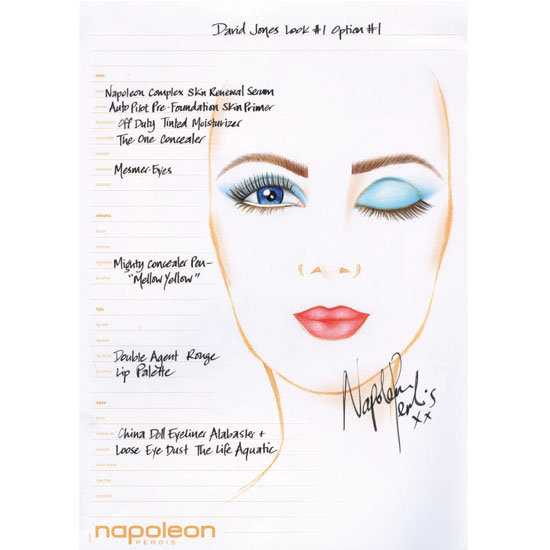 David Jones Look #1 Option #1
skin
Napoleon Complex Skin Renewal Serum
Auto Pilot Pre-Foundation Skin Primer
Off Duty Tinted Moisturizer
The One Concealer
Mesmer-Eyes
cheeks
Mighty Concealer Pen-
"Mellow Yellow"
lips
Double Agent Rouge
Lip Palette
eyes
China Doll Eyeliner Alabaster +
Loose Eye Dust The Life Aquatic
Napoleon
Perdis
xx
napoleon
PERDIS